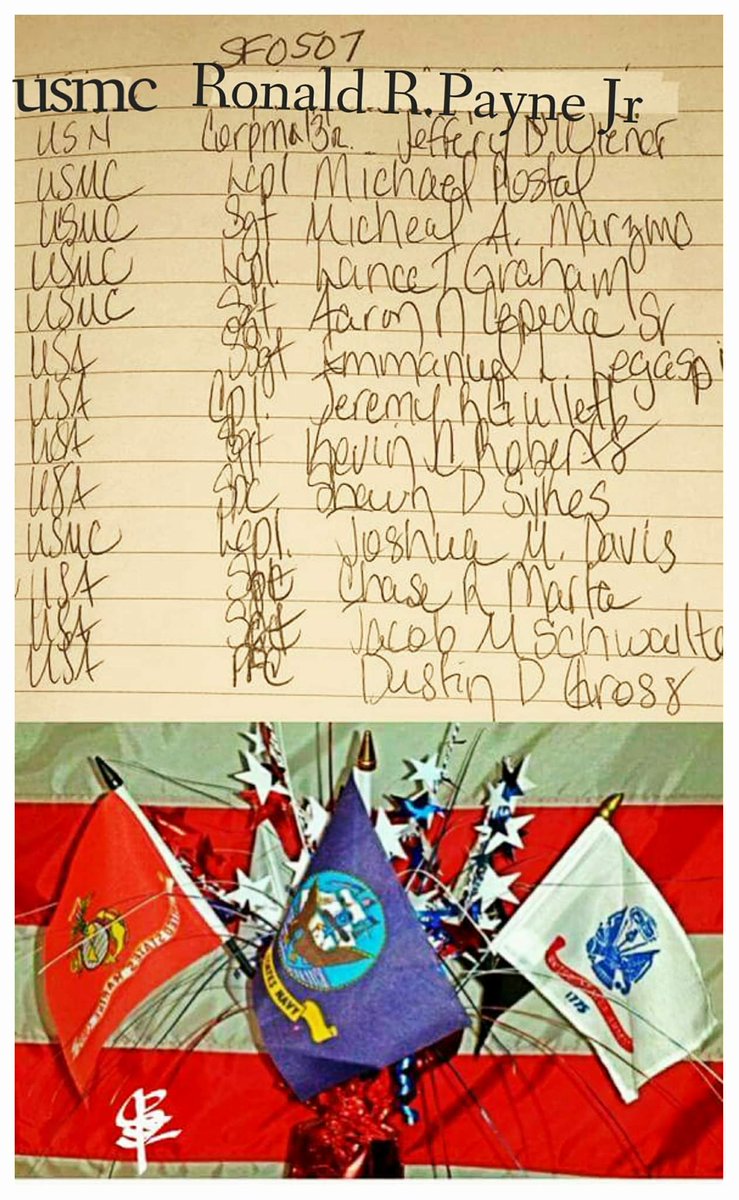 SF0507
usmc Ronald R. Payne Jr
USN Corpman 3r. Jeffery D Wiener
USMC Lcpl Michael Postal
USMC Sgt Micheal A. Marzano
USMC Lcpl. Lance T Graham
USMC Sgt Aaron N Cepeda Sr
USA SSgt Emmanuel L. Legaspi
USA Cpl. Jeremy R Gullett
USA Sgt Kevin C Roberts
USA Spc Shawn D Sykes
USMC Lcpl. Joshua M. Davis
USA Chase R Marta
USA Jacob M Schwallie
USA PFC Dustin D Gross
UNITED STATES NAVY
1775